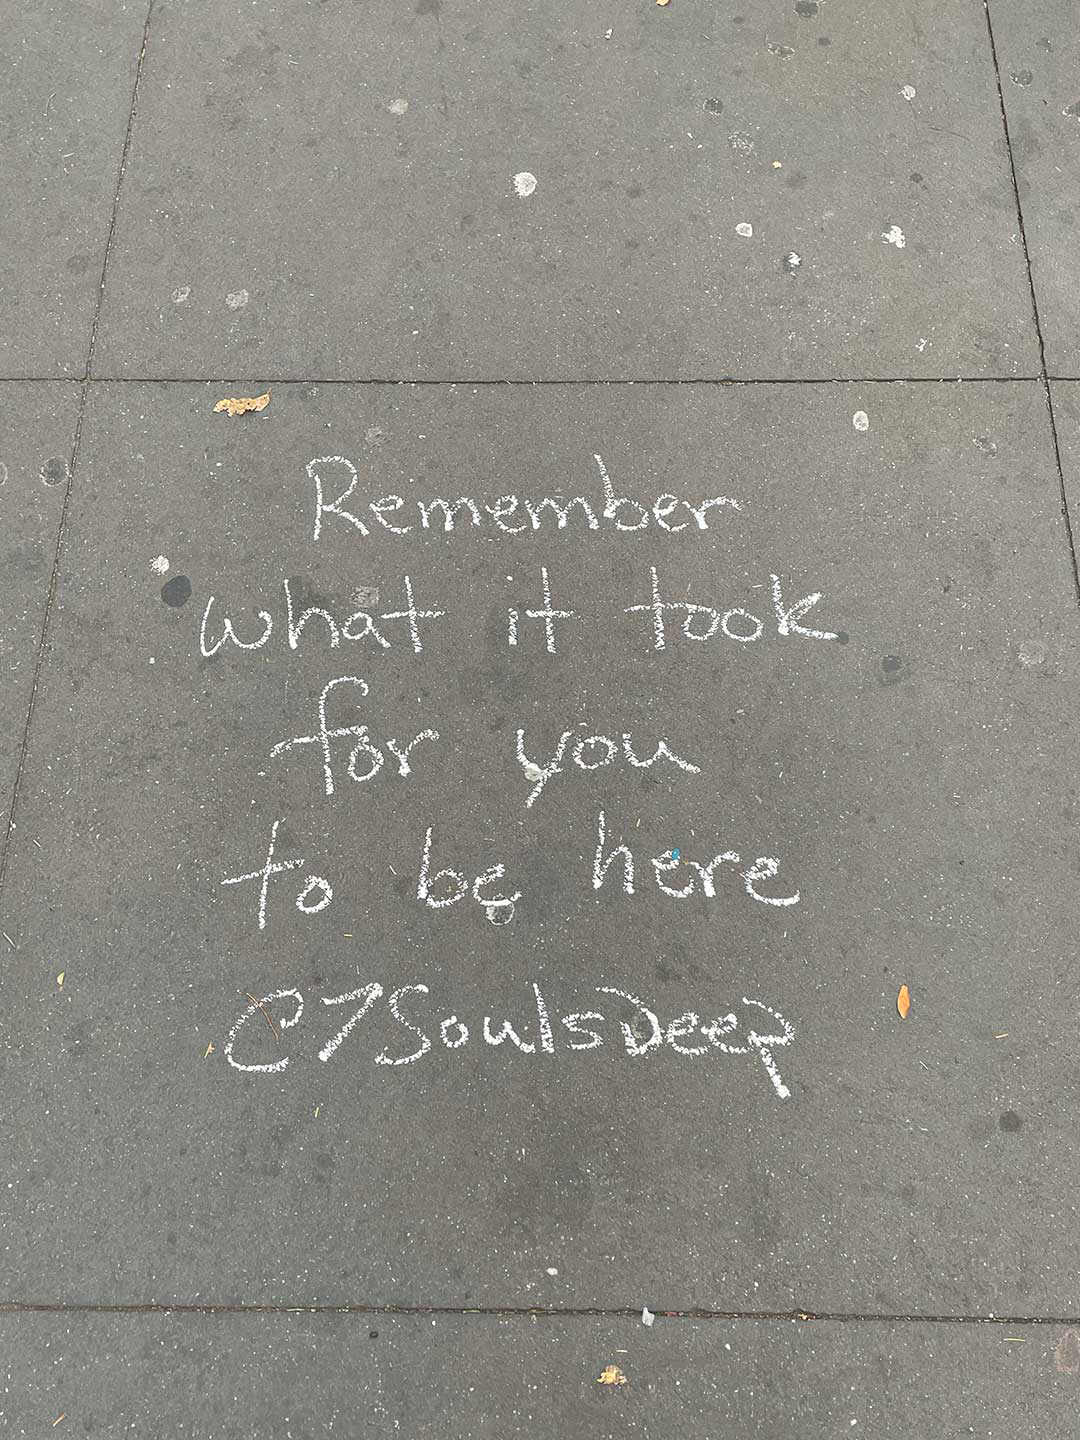 Remember
what it took
for you
to be here
@7SoulsDeep